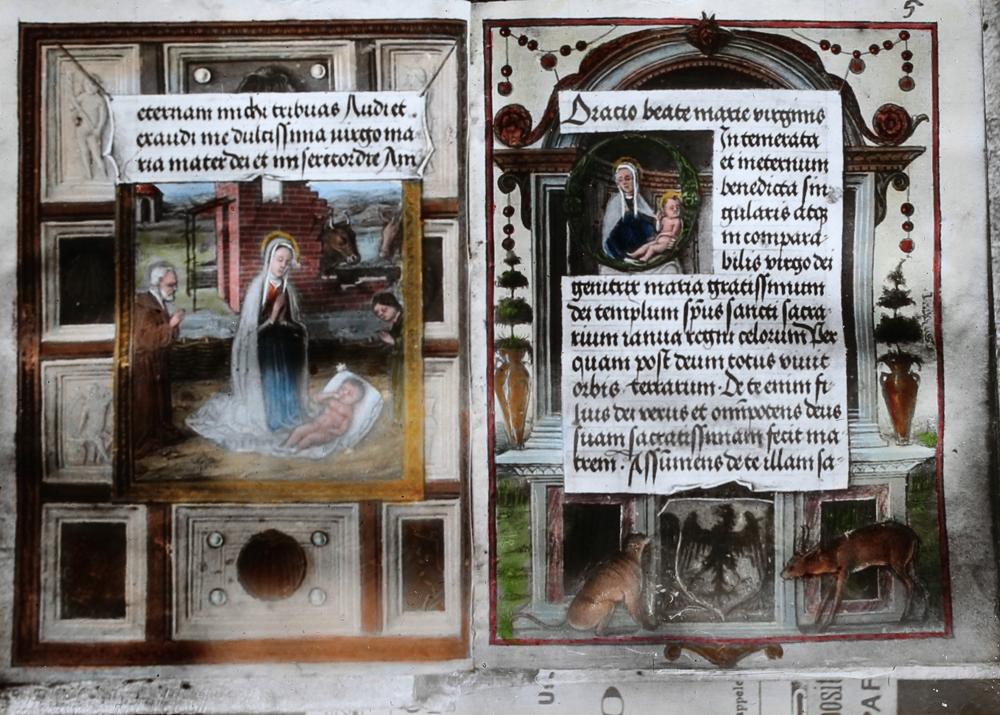 eternam michi tribuas Audi et
exaudi me dulcissima uirgo ma
ria mater dei et misericordie Am
5
Oratio beate marie virginis
Intemerata
et ineternum
benedicta sin
gularis atq
incompara
bilis virgo dei
genitrix maria gratissimum
dei templum spus sancti sacra
rium ianua regni celorum Per
quam post deum totus viuit
orbis terrarum. De te enim fi
lius dei verus et omipotens deus
suam sacratissimam fecit ma
trem. Assumens de te illam sa
appele
POSIT
AF